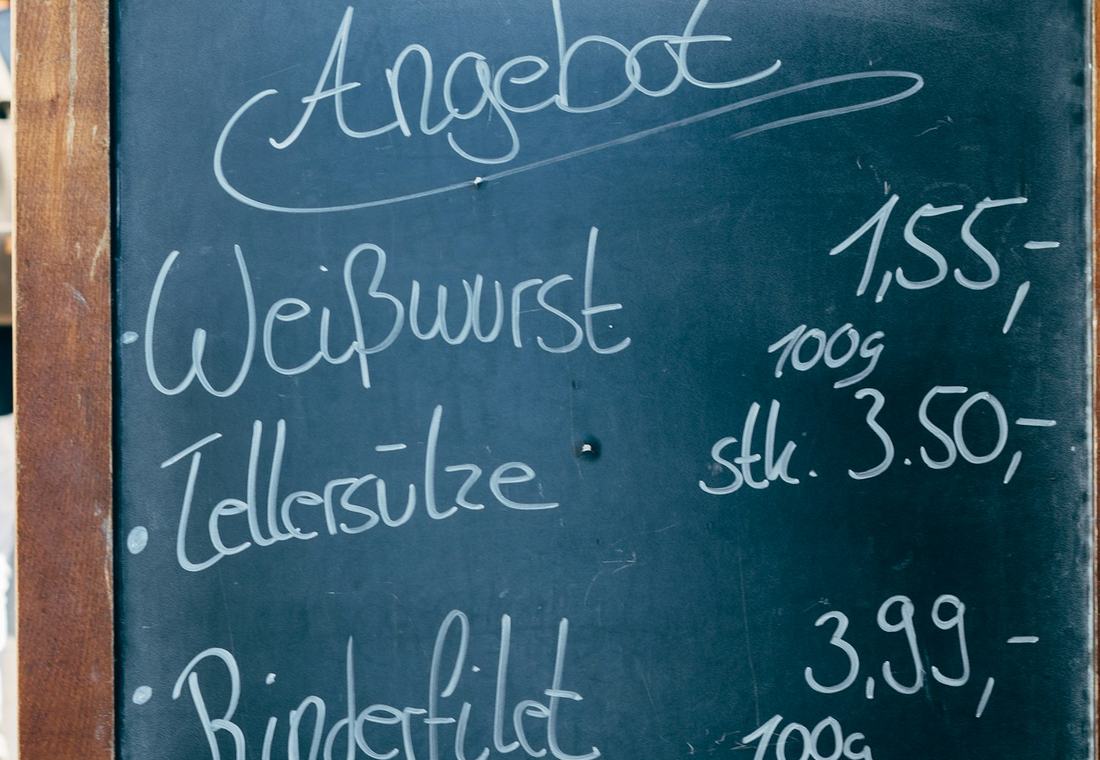 Angebot
· Weißwurst 1,55,-
100g
· Tellersülze stk. 3.50,-
· Rinderfilet 3,99,-
100g